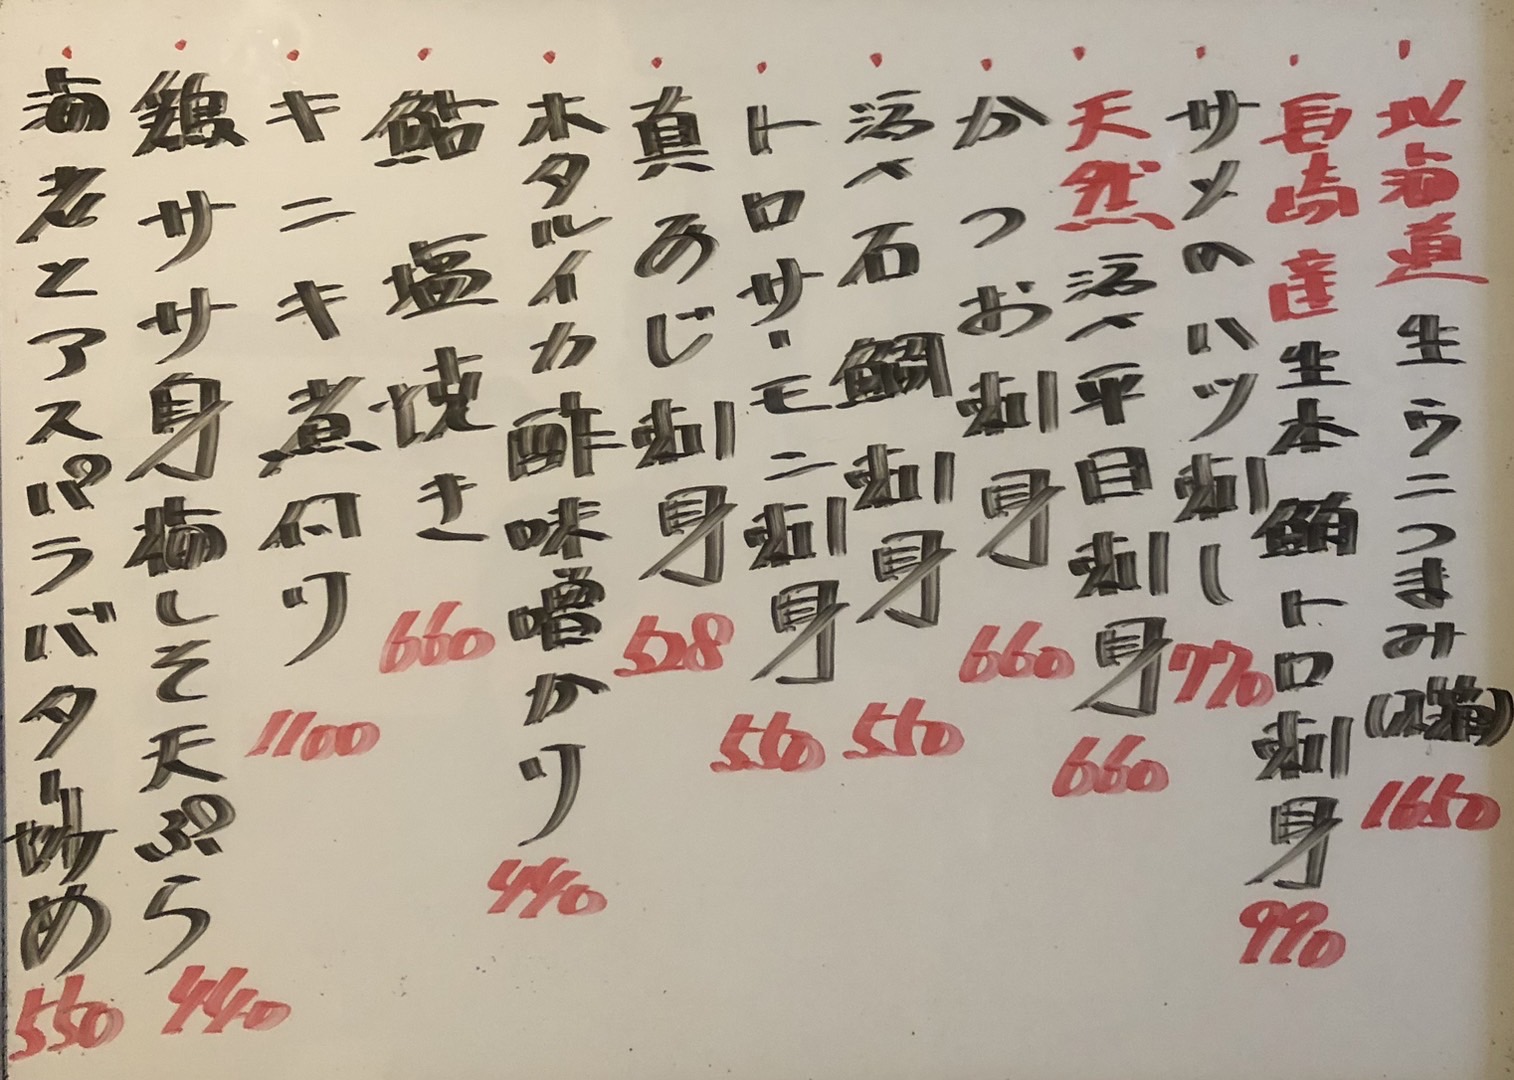 北海道生ウニつまみ(木箱)1650
長崎産生本鮪トロ刺身990
サメのハツ刺し770
天然活〆平目刺身660
かつお刺身660
活〆石鯛刺身550
トロサーモン刺身550
真あじ刺身528
ホタルイカ酢味噌かけ440
鮎塩焼き660
キンキ煮付け1100
鶏ササ身梅しそ天ぷら440
海老とアスパラバター炒め550